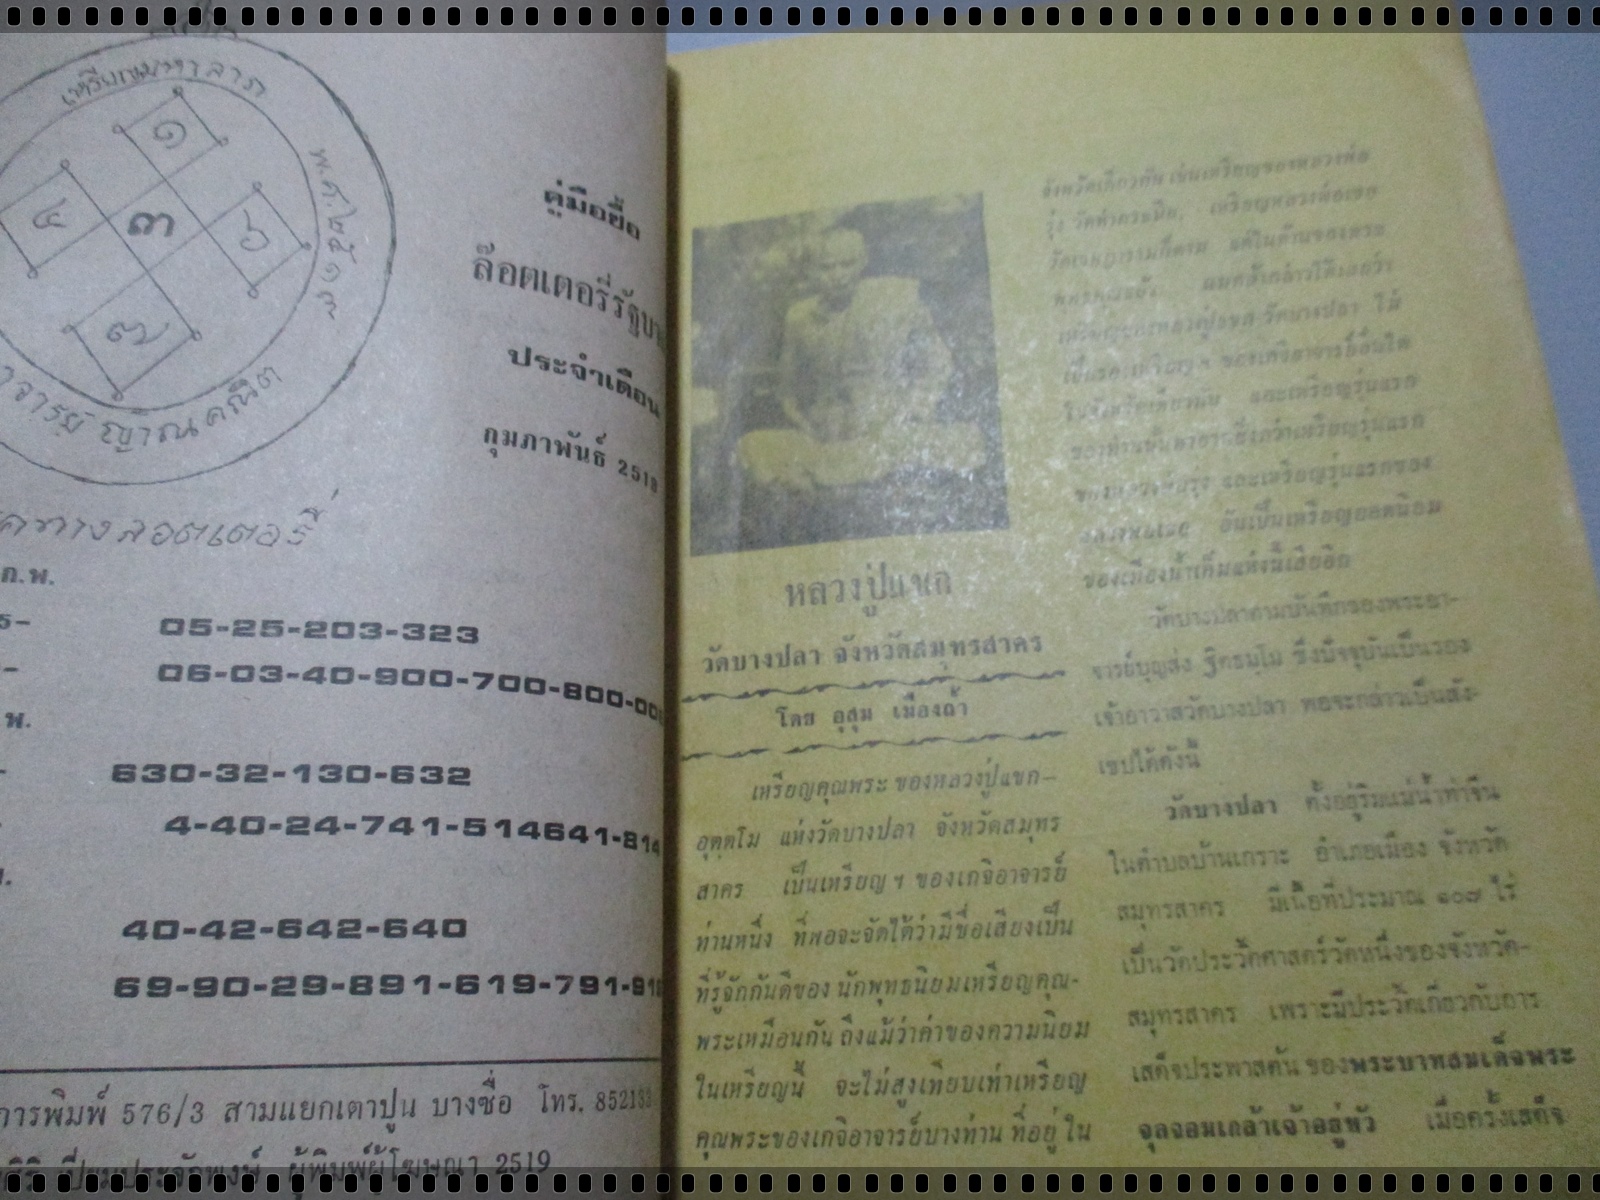 เหรียญมหาลาภ
พ.ศ.๒๕๑๙
๑
๔ ๓ ๖
๗
จารย์ ญาณคณิต
คู่มือซื้อ
ล๊อตเตอรี่รัฐบา
ประจำเดือน
กุมภาพันธ์ 2519
ทางลอตเตอรี่
ก.พ.
05-25-203-323
06-03-40-900-700-800-00
พ.
630-32-130-632
4-40-24-741-514641-814
40-42-642-640
69-90-29-891-619-791-91
การพิมพ์ 576/3 สามแยกเตาปูน บางซื่อ โทร.
เปี่ยมประจักพงษ์ ผู้พิมพ์ผู้โฆษณา 2519
หลวงปู่แขก
วัดบางปลา จังหวัดสมุทรสาคร
โดย อุสุม เมืองถ้ำ
เหรียญคุณพระ ของหลวงปู่แขก-
อุตฺตโม แห่งวัดบางปลา จังหวัดสมุทร
สาคร เป็นเหรียญ ฯ ของเกจิอาจารย์
ท่านหนึ่ง ที่พอจะจัดได้ว่ามีชื่อเสียงเป็น
ที่รู้จักกันดีของ นักพุทธนิยมเหรียญคุณ-
พระเหมือนกัน ถึงแม้ว่าค่าของความนิยม
ในเหรียญนี้ จะไม่สูงเทียบเท่าเหรียญ
คุณพระของเกจิอาจารย์บางท่าน ที่อยู่ ใน
จังหวัดเดียวกัน เช่นเหรียญของหลวงพ่อ
รุ่ง วัดท่ากระบือ, เหรียญหลวงพ่อเชย
วัดเจษฎารามก็ตาม แต่ในด้านของ
วัดบางปลา
และเหรียญรุ่นแรก
เหรียญรุ่นแรก
และเหรียญรุ่นแรกของ
อันเป็นเหรียญยอดนิยม
ของเมืองน้ำเค็มแห่งนี้เสียอีก
วัดบางปลาตามบันทึกของพระอา-
จารย์บุญส่ง ฐิตธมฺโม ซึ่งปัจจุบันเป็นรอง
เจ้าอาวาสวัดบางปลา พอจะกล่าวเป็นสัง-
เขปได้ดังนี้
วัดบางปลา ตั้งอยู่ริมแม่น้ำท่าจีน
ในตำบลบ้านเกาะ อำเภอเมือง จังหวัด
สมุทรสาคร มีเนื้อที่ประมาณ ๑๐๗ ไร่
เป็นวัดประวัติศาสตร์วัดหนึ่งของจังหวัด-
สมุทรสาคร เพราะมีประวัติเกี่ยวกับการ
เสด็จประพาสต้น ของพระบาทสมเด็จพระ
จุลจอมเกล้าเจ้าอยู่หัว เมื่อครั้งเสด็จ